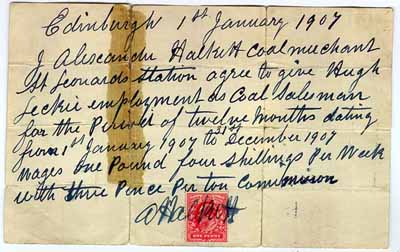 Edinburgh 1st January 1907
I Alexander Hackett Coal merchant
St Leonards Station agree to give Hugh
Leckie employment as Coal Salesman
for the Period of twelve months dating
from 1st January 1907 to 31st December 1907
Wages One Pound four Shillings Per Week
with three Pence Per ton Commission
A Hackett
ONE PENNY